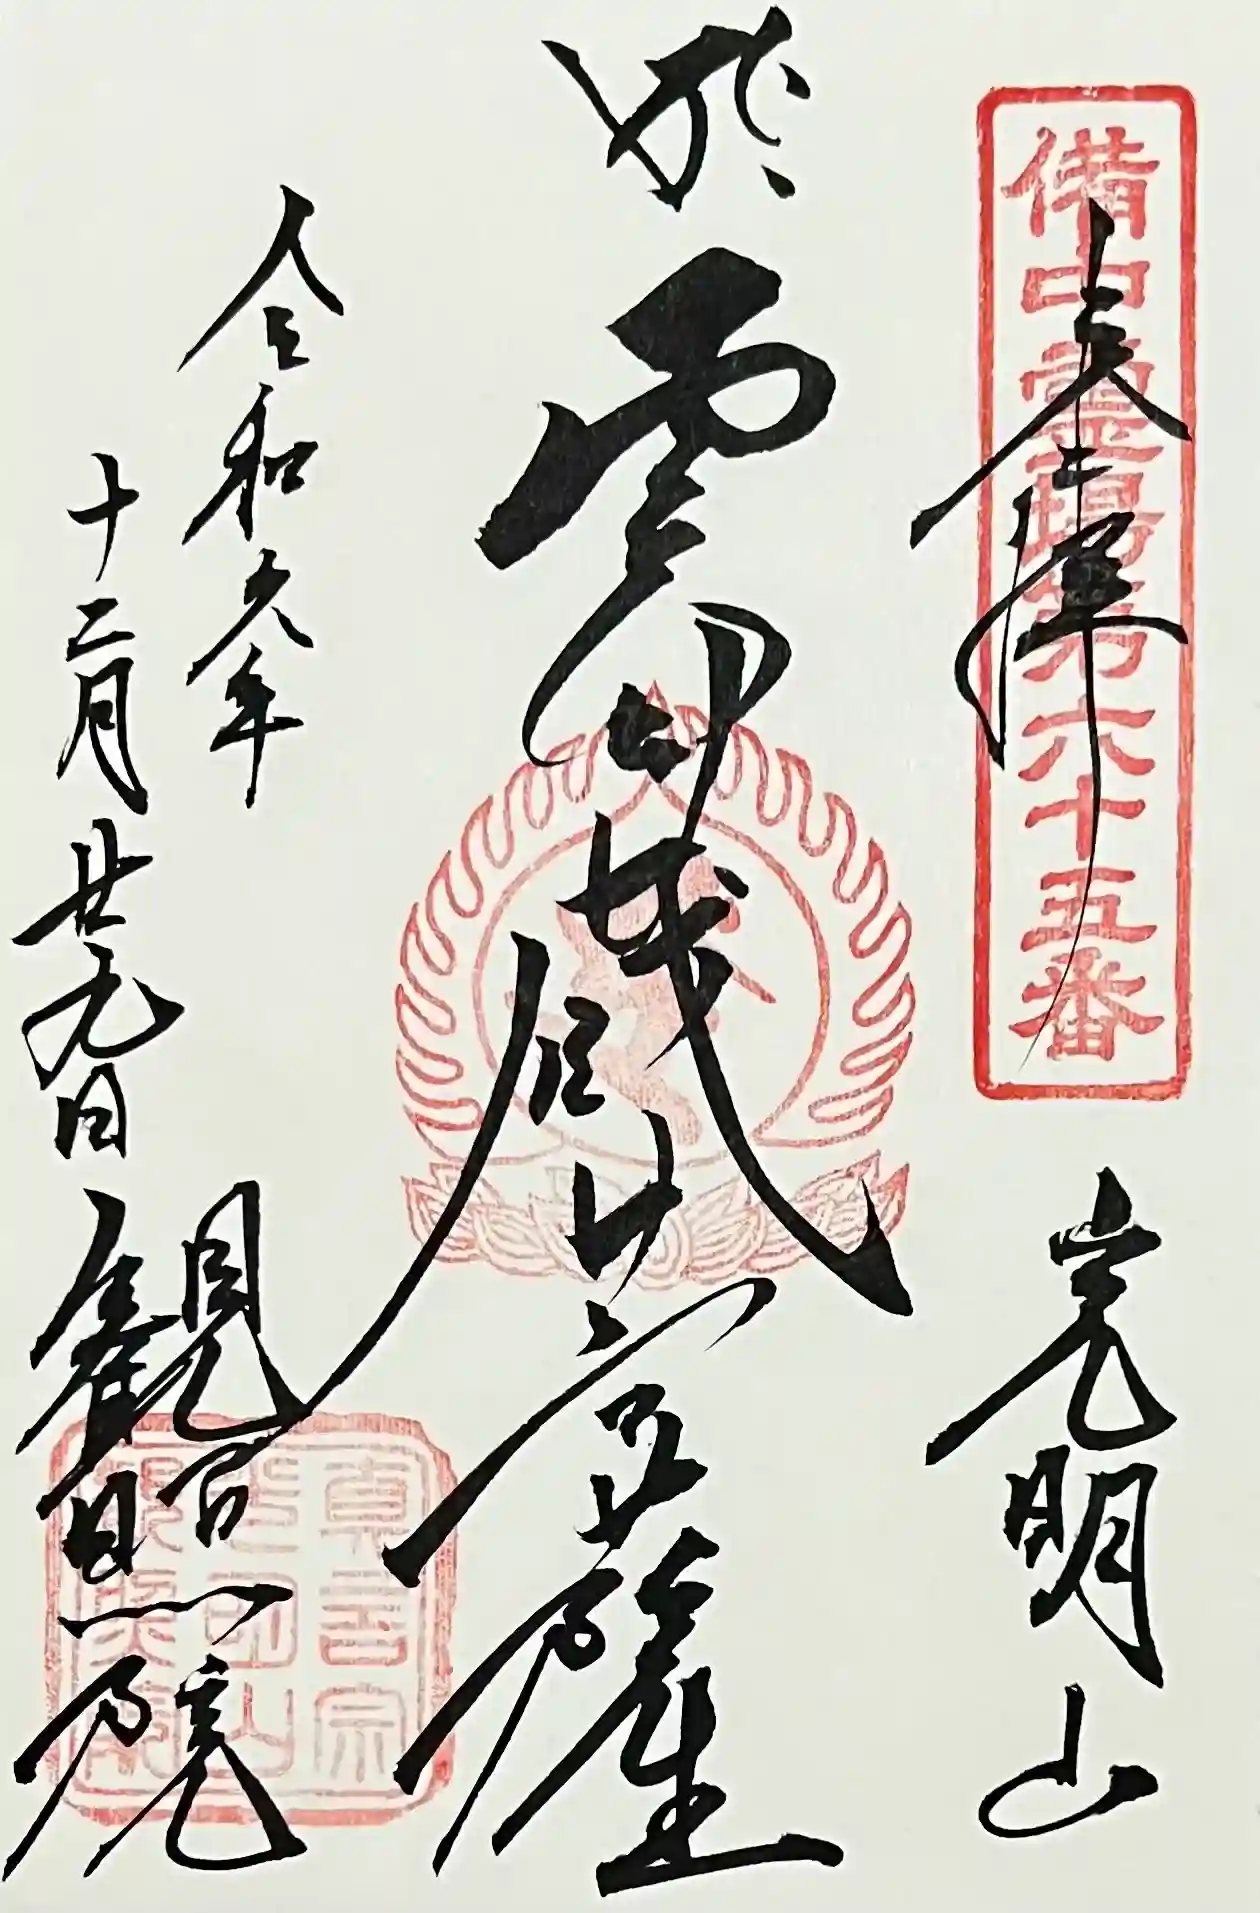 備中霊場第六十五番
奉拝
光明山
菩薩
令和六年
十二月廿九日
観照院
真言宗
光明山
観照院